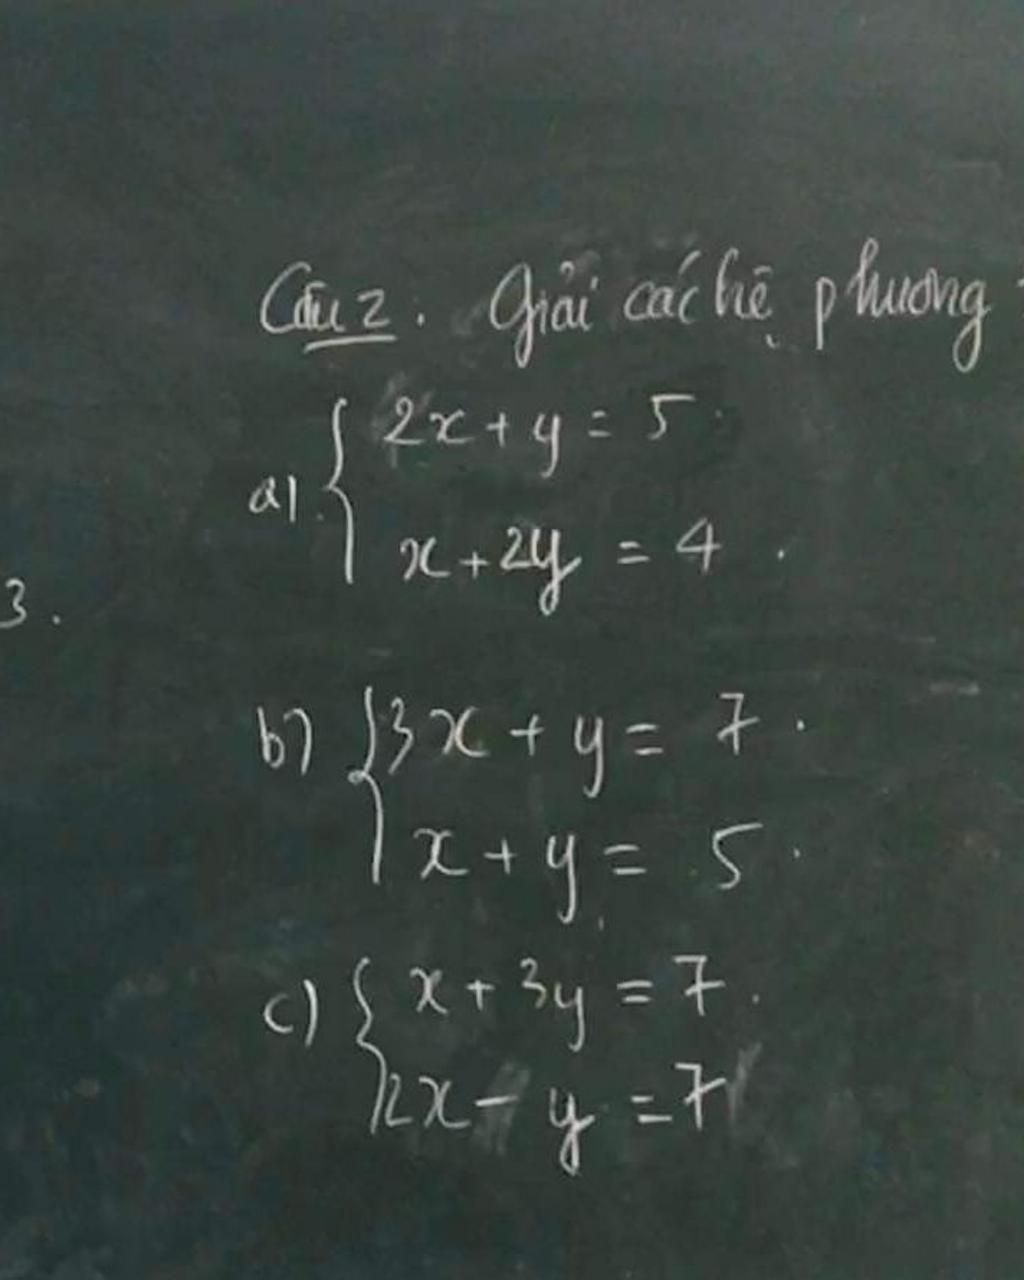 Câu 2. Giải các hệ phương
a) { 2x + y = 5
x + 2y = 4.
3.
b) { 3x + y = 7.
x + y = 5.
c) { x + 3y = 7.
2x - y = 7